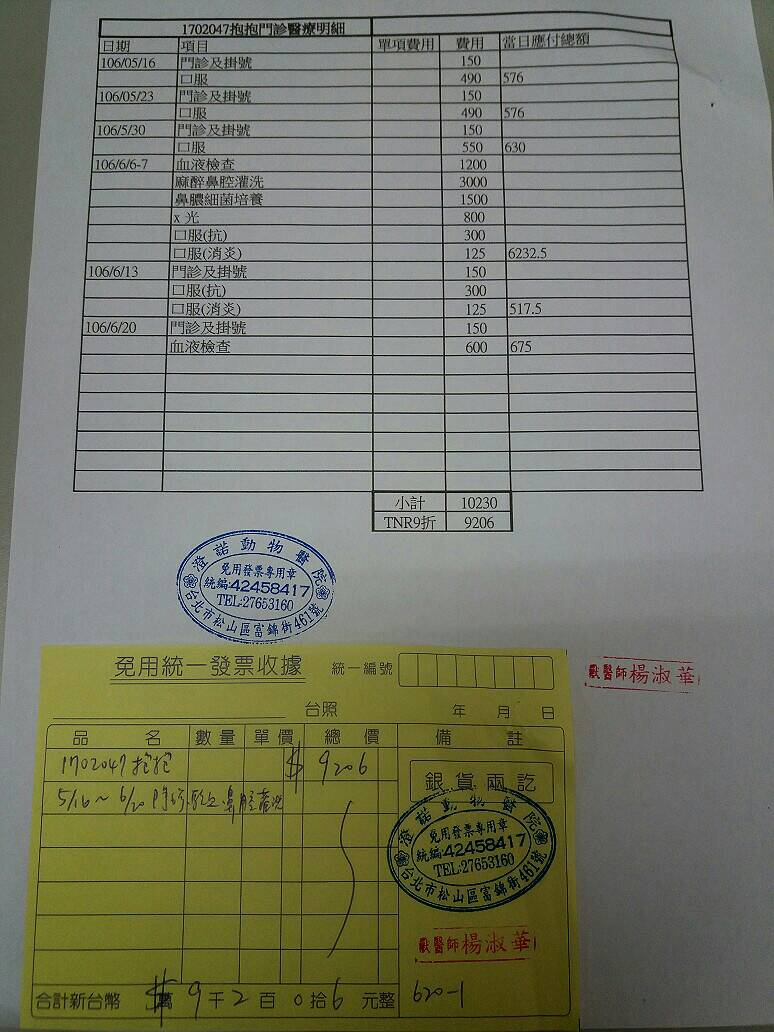 1702047抱抱門診醫療明細
日期 項目 單項費用 費用 當日應付總額
106/05/16 門診及掛號 150
口服 490 576
106/05/23 門診及掛號 150
口服 490 576
106/5/30 門診及掛號 150
口服 550 630
106/6/6-7 血液檢查 1200
麻醉鼻腔灌洗 3000
鼻膿細菌培養 1500
x 光 800
口服(抗) 300
口服(消炎) 125 6232.5
106/6/13 門診及掛號 150
口服(抗) 300
口服(消炎) 125 517.5
106/6/20 門診及掛號 150
血液檢查 600 675
小計 10230
TNR9折 9206
澄諾動物醫院
免用發票專用章
統編:42458417
TEL:27653160
台北市松山區富錦街461號
獸醫師楊淑華
免用統一發票收據 統一編號
台照 年 月 日
品 名 數量 單價 總價 備註
1702047抱抱 $ 9206
5/16～6/20 門診 鼻腔灌洗
銀貨兩訖
澄諾動物醫院
免用發票專用章
統編:42458417
TEL:27653160
台北市松山區富錦街461號
獸醫師楊淑華
合計新台幣 $ 萬 9 千 2 百 0 拾 6 元整
620-1